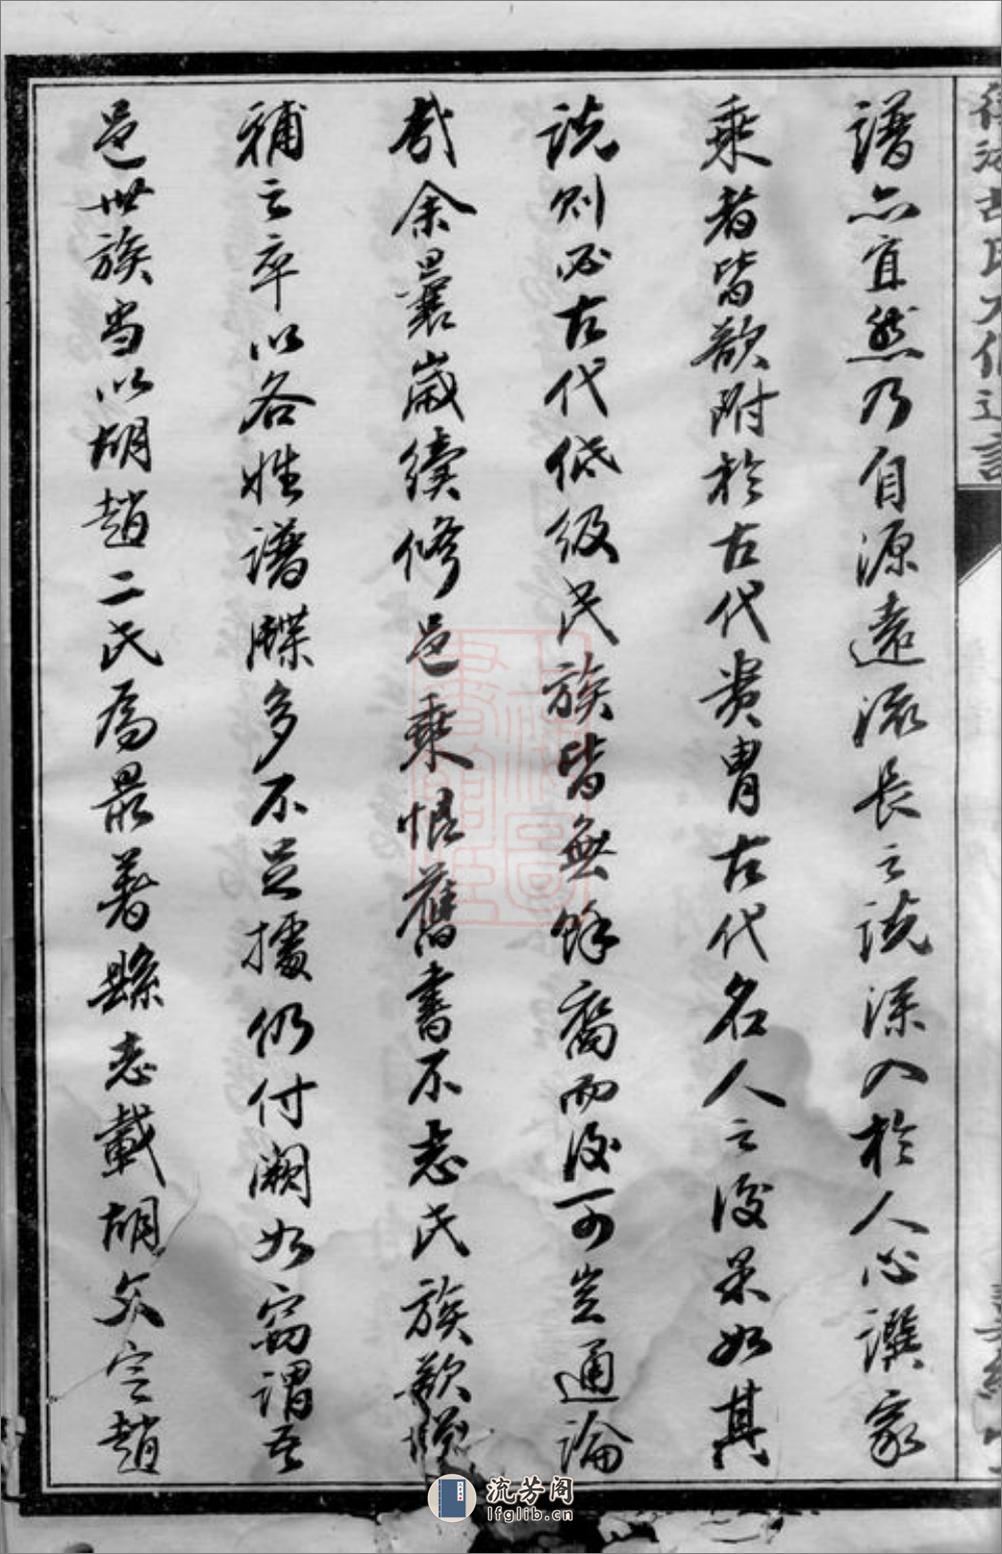 譜亦宜然乃自源遠流長之說深入於人心譔家
乘者皆欲附於古代貴胄古代名人之後果如其
說則必古代低級民族皆無餘裔而後可豈通論
哉余曩歲續修邑乘惜舊書不志氏族歉
補之卒以各姓譜牒多不足據仍付闕如竊謂吾
邑世族當以胡趙二氏為最著縣志載胡趙
流芳阁
lfglib.cn